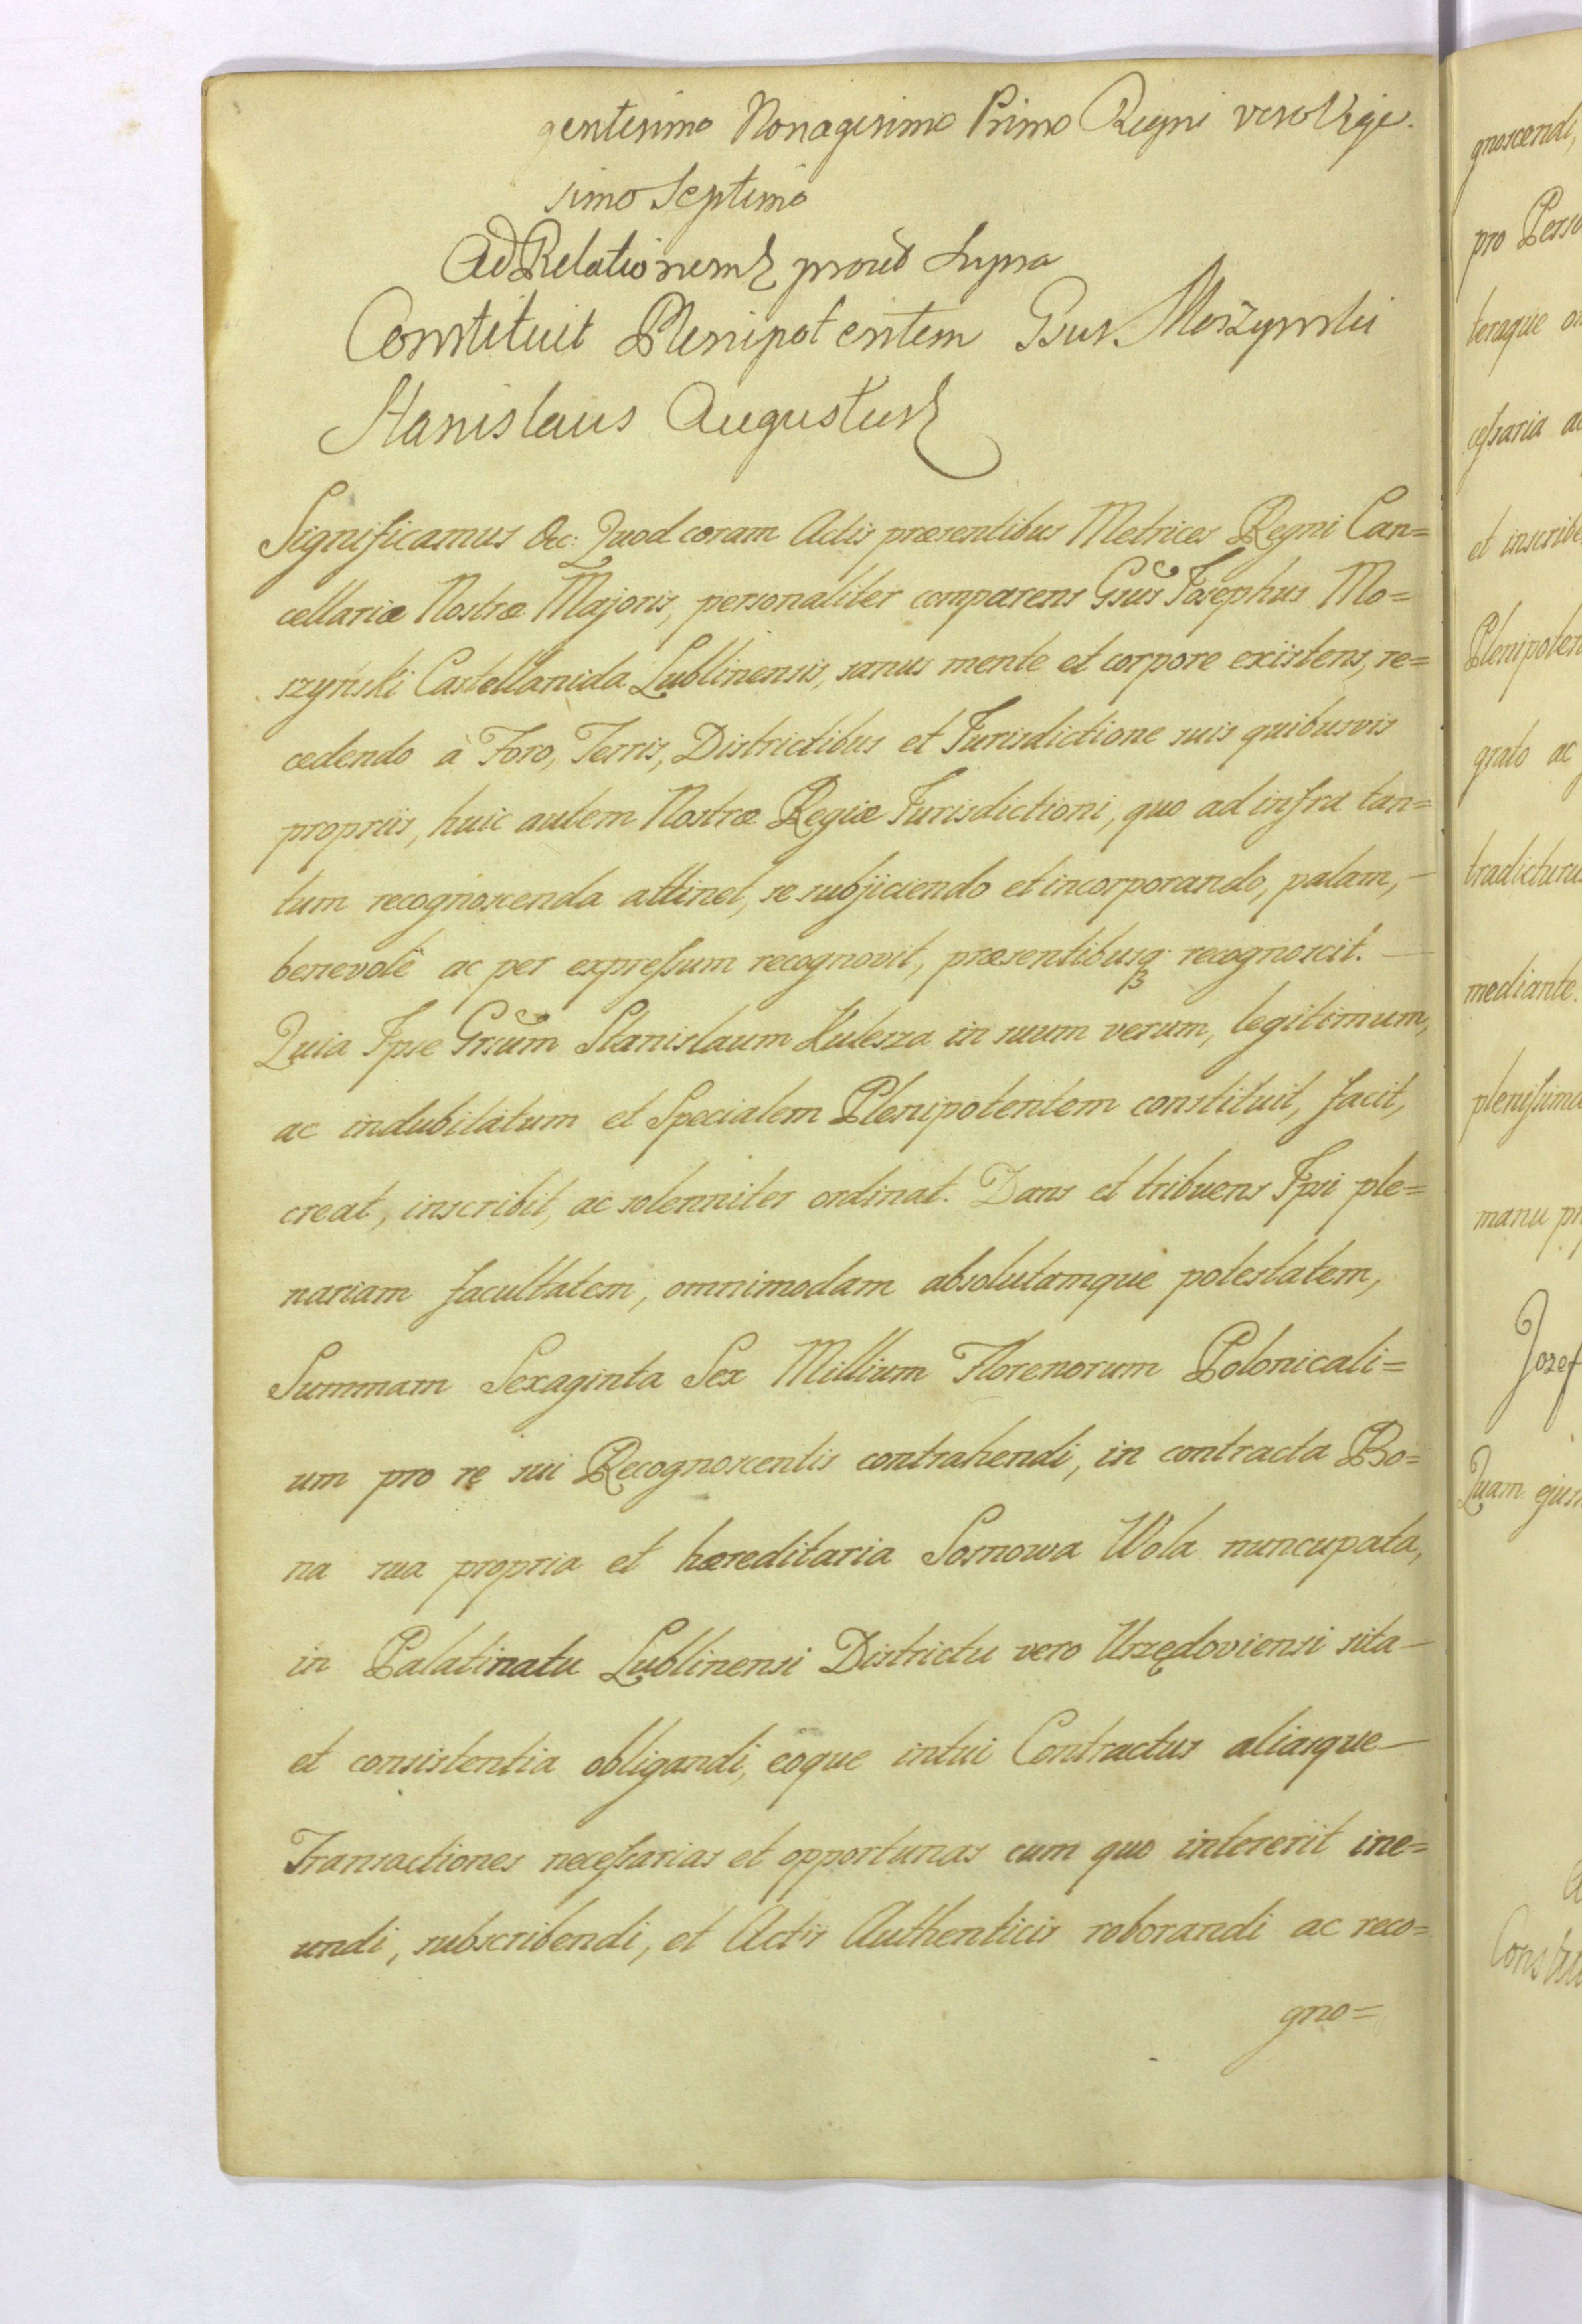 gentesimo Nonagesimo Primo Regni vero Vige-
simo Septimo
Ad Relationem prout Supra
Constituit Plenipotentem Gsus Moszynski
Stanislaus Augustus
Significamus &c: Quod coram Actis præsentibus Metrices Regni Can=
cellariæ Nostræ Majoris, personaliter comparens Gsus Josephus Mo=
szyński Castellanida Lublinensis, sanus mente et corpore existens, re=
cedendo à Foro, Terris, Districtibus et Jurisdictione suis quibusvis
propriis, huic autem Nostræ Regiæ Jurisdictioni, quo ad infra tan=
tum recognoscenda attinet, se subjiciendo et incorporando, palam, —
benevolè ac per expreſsum recognovit, præsentibusq recognoscit. —
Quia Ipse Gsum Stanislaum Kulesza in suum verum, legitimum,
ac indubitatum et Specialem Plenipotentem constituit, facit,
creat, inscribit, ac solenniter ordinat. Dans et tribuens Ipsi ple=
nariam facultatem, omnimodam absolutamque potestatem,
Summam Sexaginta Sex Millium Florenorum Polonicali=
um pro re sui Recognoscentis contrahendi, in contracta Bo=
na sua propria et hæreditaria Sosnowa Wola nuncupata,
in Palatinatu Lublinensi Districtu vero Urzędoviensi sita —
et consistentia obligandi, eòque intui Contractus aliasque —
Transactiones neceſsarias et opportunas cum quo intererit ine=
undi, subscribendi, et Actis Authenticis roborandi ac reco=
gno=
gnoscendi,
pro Perso
teraque
ceſsaria
et inscribe
Plenipoten
grato ac
tradictur
mediante.
pleniſsima
manu
Jozef
Quam